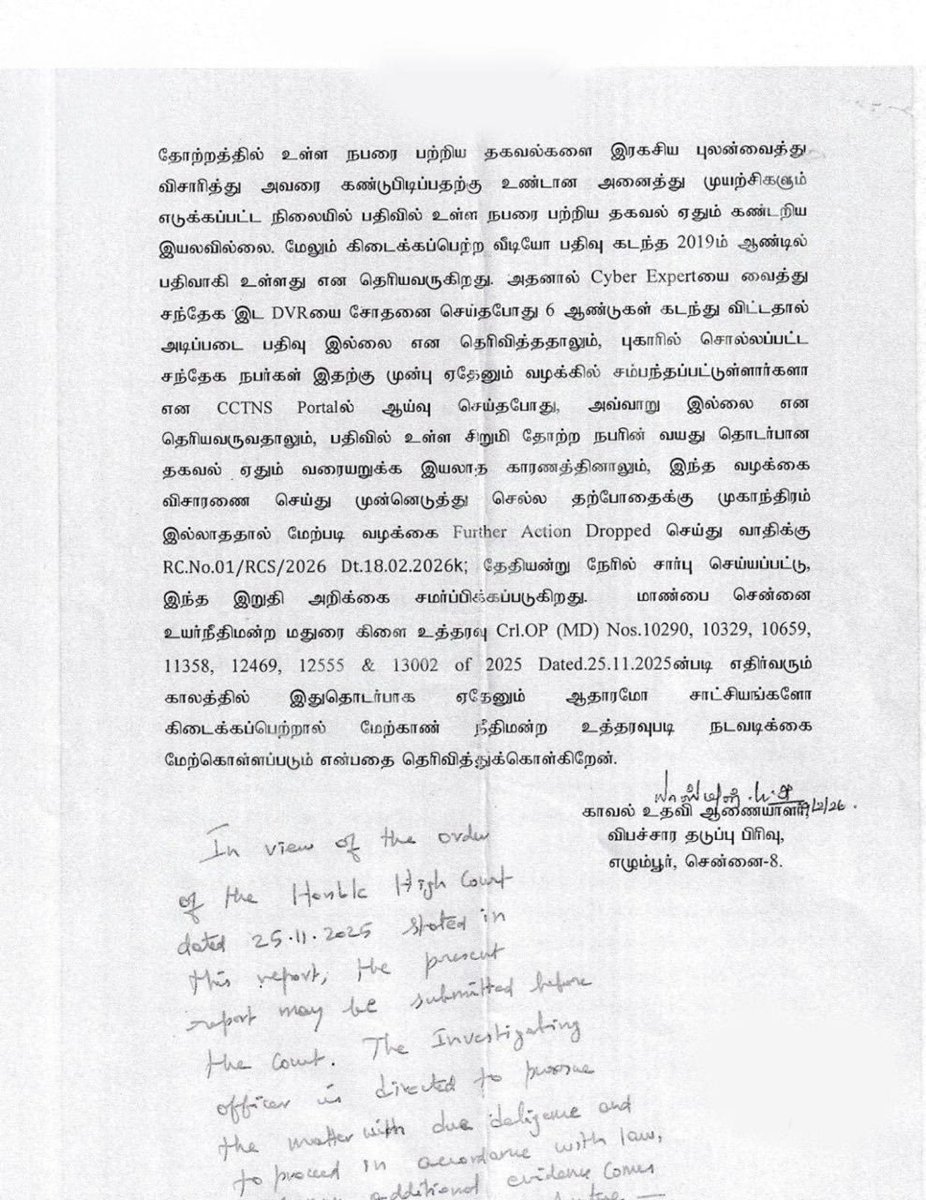 தோற்றத்தில் உள்ள நபரை பற்றிய தகவல்களை இரகசிய புலன்வைத்து
விசாரித்து அவரை கண்டுபிடிப்பதற்கு உண்டான அனைத்து முயற்சிகளும்
எடுக்கப்பட்ட நிலையில் பதிவில் உள்ள நபரை பற்றிய தகவல் ஏதும் கண்டறிய
இயலவில்லை. மேலும் கிடைக்கப்பெற்ற வீடியோ பதிவு கடந்த 2019ம் ஆண்டில்
பதிவாகி உள்ளது என தெரியவருகிறது. அதனால் Cyber Expertயை வைத்து
சந்தேக இட DVRயை சோதனை செய்தபோது 6 ஆண்டுகள் கடந்து விட்டதால்
அடிப்படை பதிவு இல்லை என தெரிவித்ததாலும், புகாரில் சொல்லப்பட்ட
சந்தேக நபர்கள் இதற்கு முன்பு ஏதேனும் வழக்கில் சம்பந்தப்பட்டுள்ளார்களா
என CCTNS Portalல் ஆய்வு செய்தபோது, அவ்வாறு இல்லை என
தெரியவருவதாலும், பதிவில் உள்ள சிறுமி தோற்ற நபரின் வயது தொடர்பான
தகவல் ஏதும் வரையறுக்க இயலாத காரணத்தினாலும், இந்த வழக்கை
விசாரணை செய்து முன்னெடுத்து செல்ல தற்போதைக்கு முகாந்திரம்
இல்லாததால் மேற்படி வழக்கை Further Action Dropped செய்து வாதிக்கு
RC.No.01/RCS/2026 Dt.18.02.2026k; தேதியன்று நேரில் சார்பு செய்யப்பட்டு,
இந்த இறுதி அறிக்கை சமர்ப்பிக்கப்படுகிறது. மாண்பை சென்னை
உயர்நீதிமன்ற மதுரை கிளை உத்தரவு Crl.OP (MD) Nos.10290, 10329, 10659,
11358, 12469, 12555 & 13002 of 2025 Dated.25.11.2025ன்படி எதிர்வரும்
காலத்தில் இதுதொடர்பாக ஏதேனும் ஆதாரமோ சாட்சியங்களோ
கிடைக்கப்பெற்றால் மேற்காண் நீதிமன்ற உத்தரவுபடி நடவடிக்கை
மேற்கொள்ளப்படும் என்பதை தெரிவித்துக்கொள்கிறேன்.
/2/26.
காவல் உதவி ஆணையாளர்,
விபச்சார தடுப்பு பிரிவு,
எழும்பூர், சென்னை-8.
In view of the order
of the Honble High Court
dated 25.11.2025 stated in
this report, the present
report may be submitted before
the Court. The Investigating
officer is directed to pursue
the matter with due deligence and
to proceed in accordance with law,
additional evidence comes